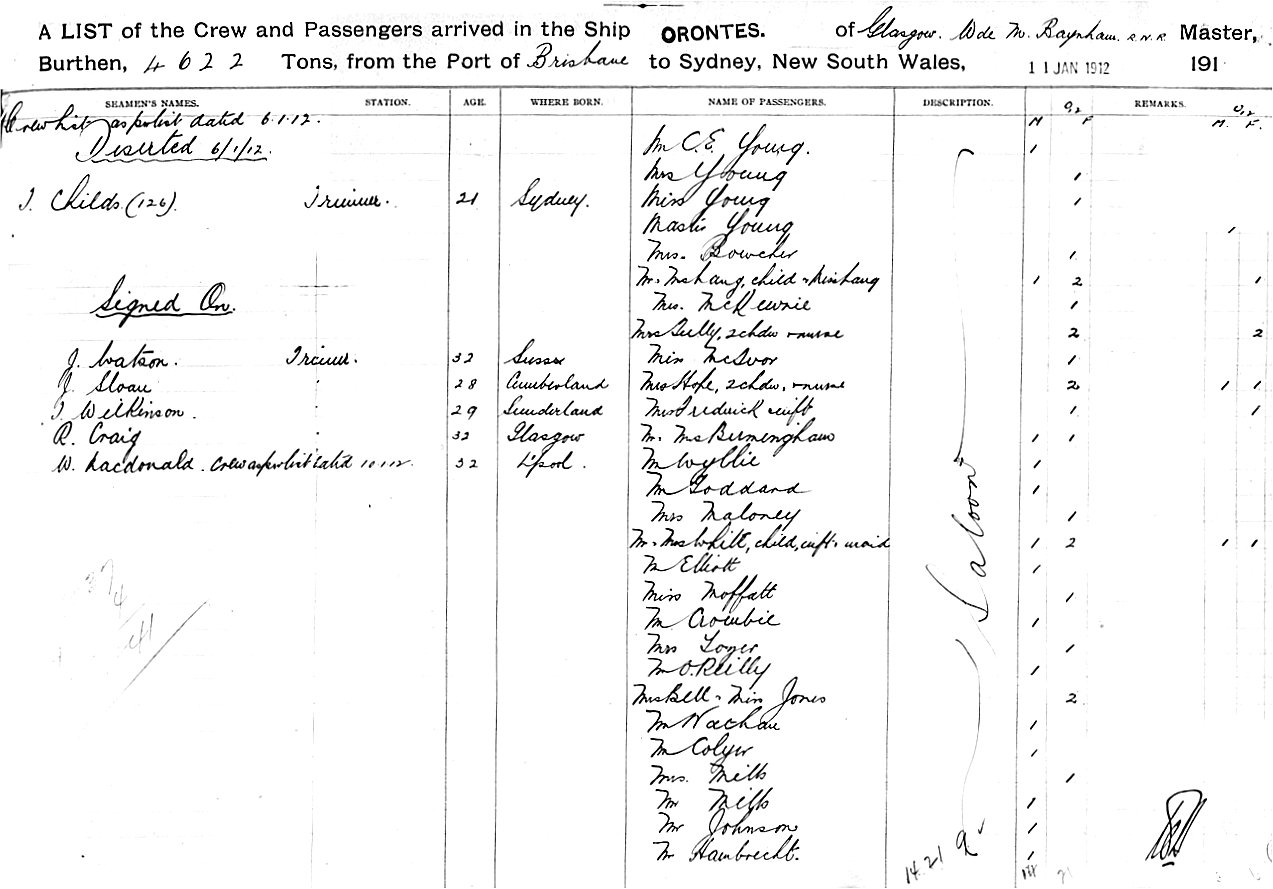 A LIST of the Crew and Passengers arrived in the Ship ORONTES. of Glasgow. Wde M. Baynham R.N.R Master,
Burthen, 4622 Tons, from the Port of Brisbane to Sydney, New South Wales, 11 JAN 1912 191
SEAMEN'S NAMES. STATION. AGE. WHERE BORN. NAME OF PASSENGERS. DESCRIPTION. REMARKS.
M F M. F.
Crew list as per list dated 6.1.12.
Mr C.E. Young. 1
Deserted 6/1/12.
Mrs Young 1
J. Childs (126). Trimmer. 21 Sydney. Miss Young 1
Master Young 1
Mrs. Bowcher 1
child 1 2 1
Signed On. Mrs. McKewnie 1
2 chdn + nurse 2 2
J. Watson. Trimmer. 32 Sussex Miss McIvor 1
J. Sloan " 28 Cumberland Mrs Hope, 2 chdn, + nurse 2 1 1
J. Wilkinson. " 29 Sunderland 1 1
R. Craig " 32 Glasgow Mr. Mrs Birmingham 1 1
W. Macdonald. Crew as per list dated 10.1.12. 32 L'pool. Mr Wyllie 1
Mr Goddard 1
Mrs Maloney 1
Mr. Mrs White, child, inft. maid 1 2 1 1
Mr Elliott 1
Saloon
Miss Moffatt 1
Mr Crombie 1
Mrs Loyer 1
Mr O.Reilly 1
Mrs Bell. Miss Jones 2
Mr Nachau 1
Mr Colyer 1
Mrs. Mills 1
Mr Mills 1
Mr Johnson 1
Mr Hambrecht. 1
14.21